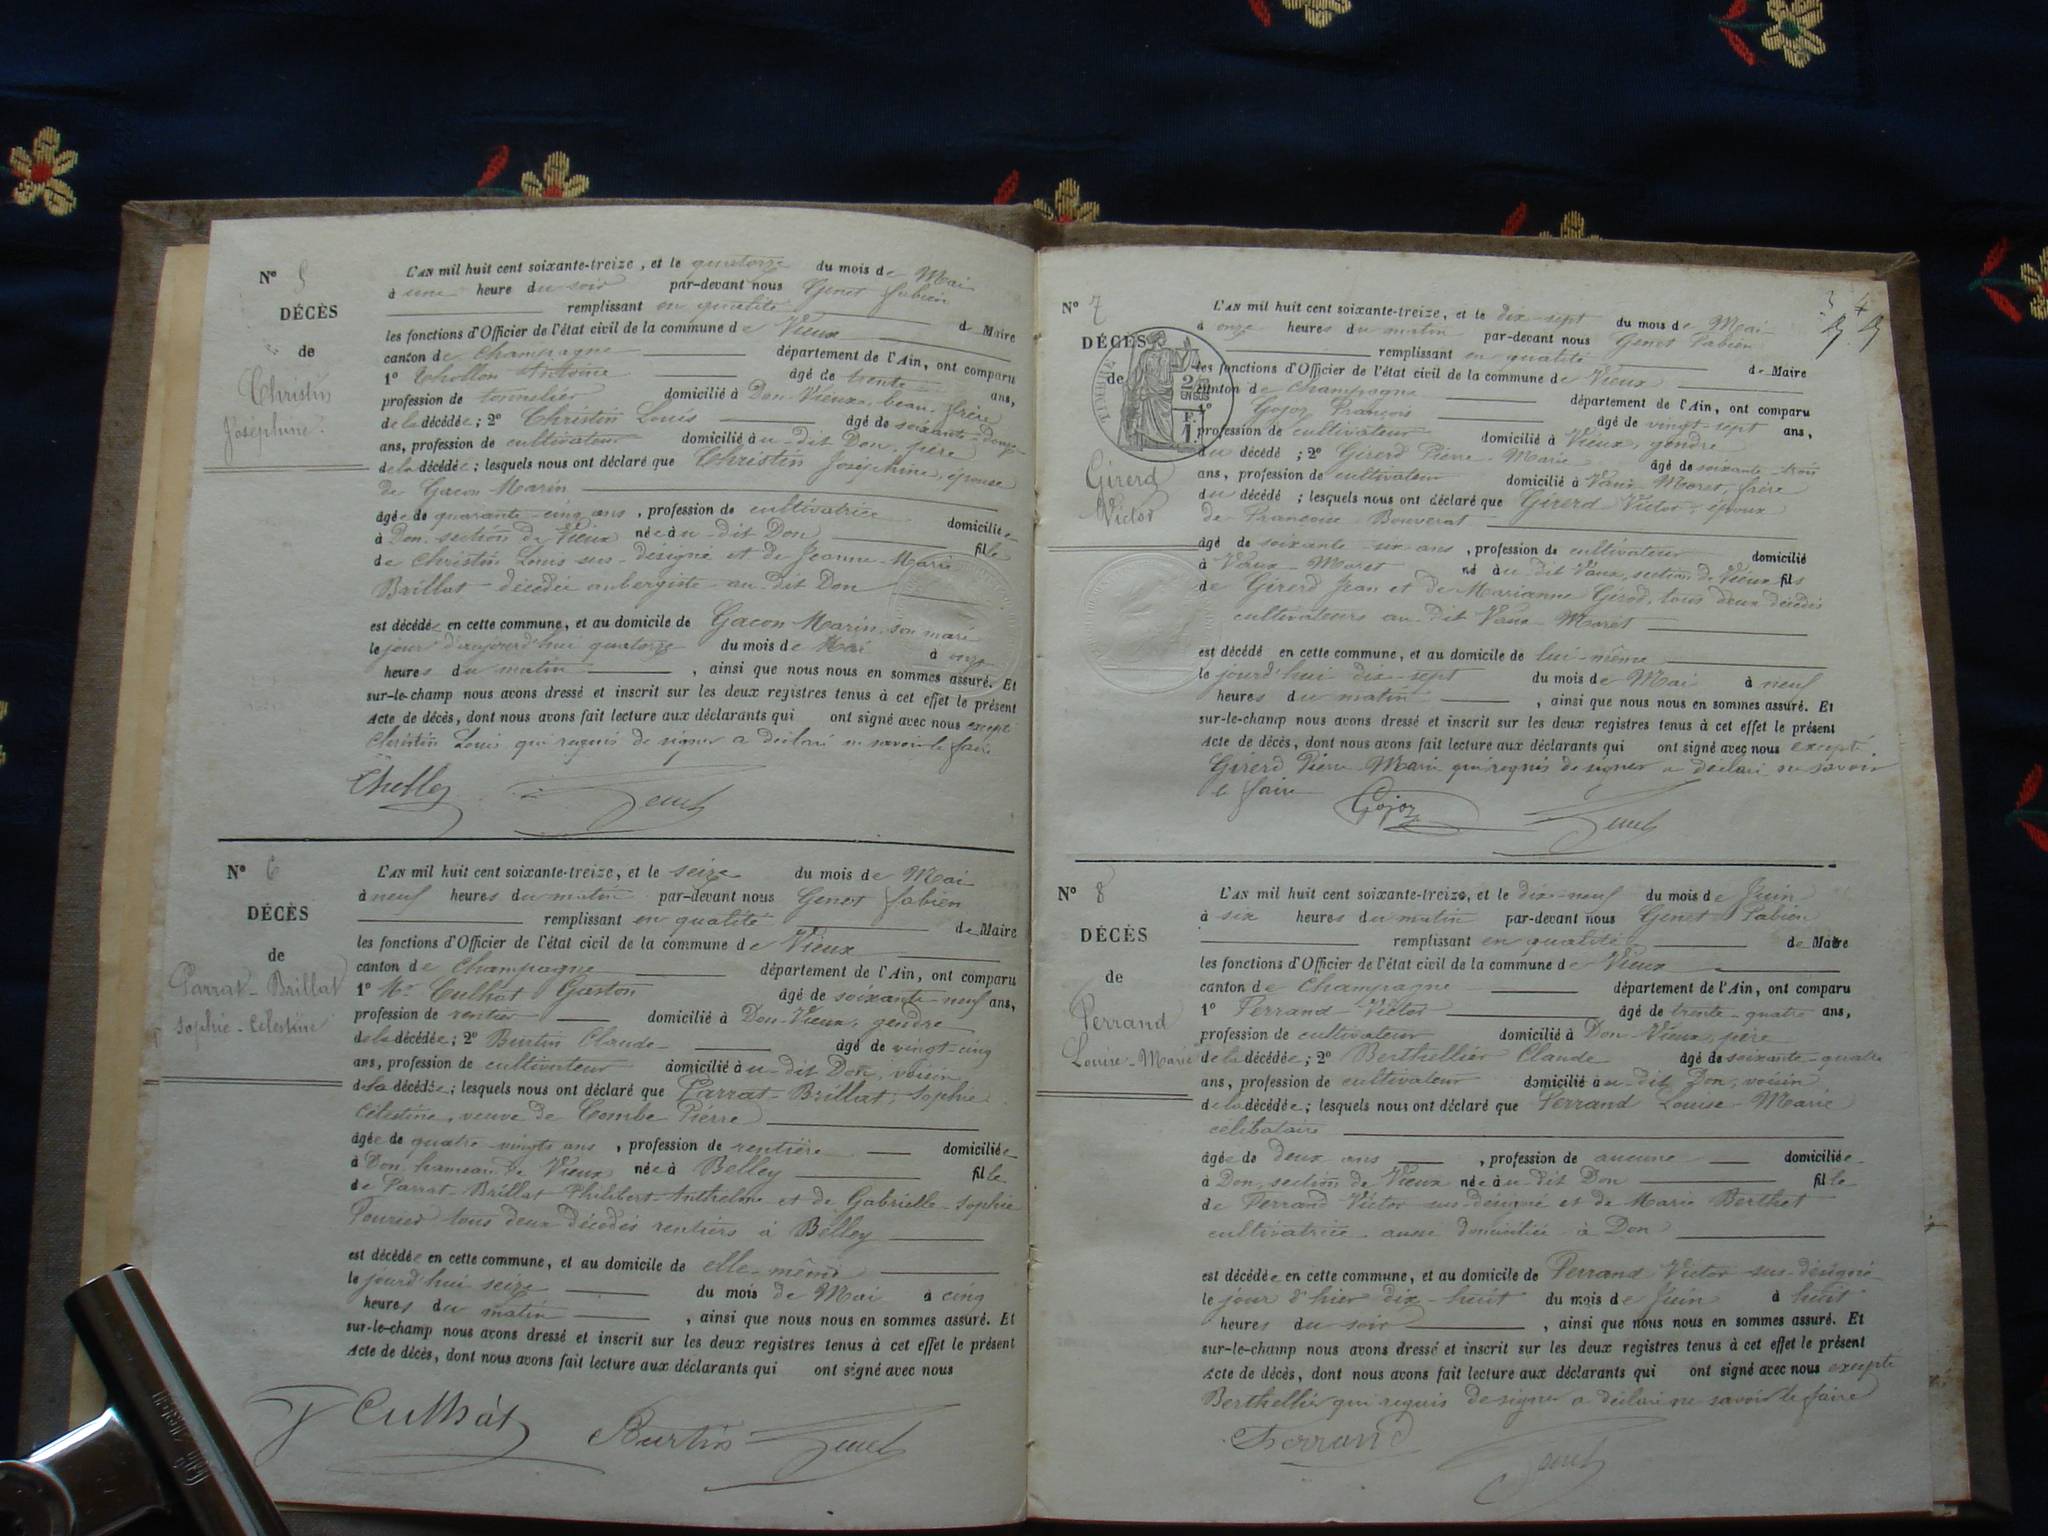 N° 5
DÉCÈS
de
Christin
Joséphine
L'AN mil huit cent soixante-treize, et le quatorze du mois de Mai
à une heure du soir par-devant nous Genet fabien
remplissant en qualité de Maire
les fonctions d'Officier de l'état civil de la commune de Vieux
canton de Champagne département de l'Ain, ont comparu
1° Chollon Antoine âgé de trente ans,
profession de tonnelier domicilié à Don-Vieux, beau-frère
de la décédée; 2° Christin Louis âgé de soixante-douze
ans, profession de cultivateur domicilié au-dit Don, père
de la décédée; lesquels nous ont déclaré que Christin Joséphine, épouse
de Gacon Marin
âgée de quarante-cinq ans, profession de cultivatrice domiciliée
à Don, section de Vieux née à u-dit Don fille
de Christin Louis sus-désigné et de Jeanne-Marie
Brillat décédée aubergiste au-dit Don
est décédée en cette commune, et au domicile de Gacon Marin, son mari
le jour d'aujourd'hui quatorze du mois de Mai à onze
heures du matin, ainsi que nous nous en sommes assuré. Et
sur-le-champ nous avons dressé et inscrit sur les deux registres tenus à cet effet le présent
Acte de décès, dont nous avons fait lecture aux déclarants qui ont signé avec nous excepté
Christin Louis qui requis de signer a déclaré ne savoir le faire
Genet
N° 6
DÉCÈS
de
Parrat-Brillat
Sophie-Célestine
L'AN mil huit cent soixante-treize, et le seize du mois de Mai
à neuf heures du matin par-devant nous Genet fabien
remplissant en qualité de Maire
les fonctions d'Officier de l'état civil de la commune de Vieux
canton de Champagne département de l'Ain, ont comparu
1° Mr Culhat Gaston âgé de soixante-neuf ans,
profession de rentier domicilié à Don-Vieux, gendre
de la décédée; 2° Burtin Claude âgé de vingt-cinq
ans, profession de cultivateur domicilié à u-dit Don, voisin
de la décédée; lesquels nous ont déclaré que Parrat-Brillat, Sophie
Célestine, veuve de Combe Pierre
âgée de quatre-vingts ans, profession de rentière domiciliée
à Don hameau de Vieux née à Belley fille
de Parrat-Brillat Philibert-Anthelme et de Gabrielle-Sophie
tous deux décédés rentiers à Belley
est décédée en cette commune, et au domicile de elle-même
le jourd'hui seize du mois de Mai à cinq
heures du matin, ainsi que nous nous en sommes assuré. Et
sur-le-champ nous avons dressé et inscrit sur les deux registres tenus à cet effet le présent
Acte de décès, dont nous avons fait lecture aux déclarants qui ont signé avec nous
Culhat Burtin Genet
N° 7
DÉCÈS
de
Girerd
Victor
TIMBRE
L'AN mil huit cent soixante-treize, et le dix-sept du mois de Mai
à onze heures du matin par-devant nous Genet Fabien
remplissant en qualité de Maire
les fonctions d'Officier de l'état civil de la commune de Vieux
canton de Champagne département de l'Ain, ont comparu
1° Gojoz François âgé de vingt-sept ans,
profession de cultivateur domicilié à Vieux, gendre
du décédé; 2° Girerd Pierre-Marie âgé de soixante-trois
ans, profession de cultivateur domicilié à Vaux-Moret, frère
du décédé; lesquels nous ont déclaré que Girerd Victor, époux
de Françoise Bouverat
âgé de soixante-six ans, profession de cultivateur domicilié
à Vaux-Moret né à u dit Vaux, section de Vieux fils
de Girerd Jean et de Marianne Girod, tous deux décédés
cultivateurs au-dit Vaux-Moret
est décédé en cette commune, et au domicile de lui-même
le jourd'hui dix-sept du mois de Mai à neuf
heures du matin, ainsi que nous nous en sommes assuré. Et
sur-le-champ nous avons dressé et inscrit sur les deux registres tenus à cet effet le présent
Acte de décès, dont nous avons fait lecture aux déclarants qui ont signé avec nous excepté
Girerd Pierre-Marie qui requis de signer a déclaré ne savoir
le faire Gojoz Genet
N° 8
DÉCÈS
de
Perrand
Louise-Marie
L'AN mil huit cent soixante-treize, et le dix-neuf du mois de Juin
à six heures du matin par-devant nous Genet Fabien
remplissant en qualité de Maire
les fonctions d'Officier de l'état civil de la commune de Vieux
canton de Champagne département de l'Ain, ont comparu
1° Perrand Victor âgé de trente-quatre ans,
profession de cultivateur domicilié à Don-Vieux, père
de la décédée; 2° Berthellier Claude âgé de soixante-quatre
ans, profession de cultivateur domicilié à u-dit Don, voisin
de la décédée; lesquels nous ont déclaré que Perrand Louise-Marie
célibataire
âgée de deux ans, profession de aucune domiciliée
à Don, section de Vieux née à u-dit Don fille
de Perrand Victor sus-désigné et de Marie Berthet
cultivatrice aussi domiciliée à Don
est décédée en cette commune, et au domicile de Perrand Victor sus-désigné
le jour d'hier dix-huit du mois de Juin à huit
heures du soir, ainsi que nous nous en sommes assuré. Et
sur-le-champ nous avons dressé et inscrit sur les deux registres tenus à cet effet le présent
Acte de décès, dont nous avons fait lecture aux déclarants qui ont signé avec nous excepté
Berthellier qui requis de signer a déclaré ne savoir le faire
Perrand Genet